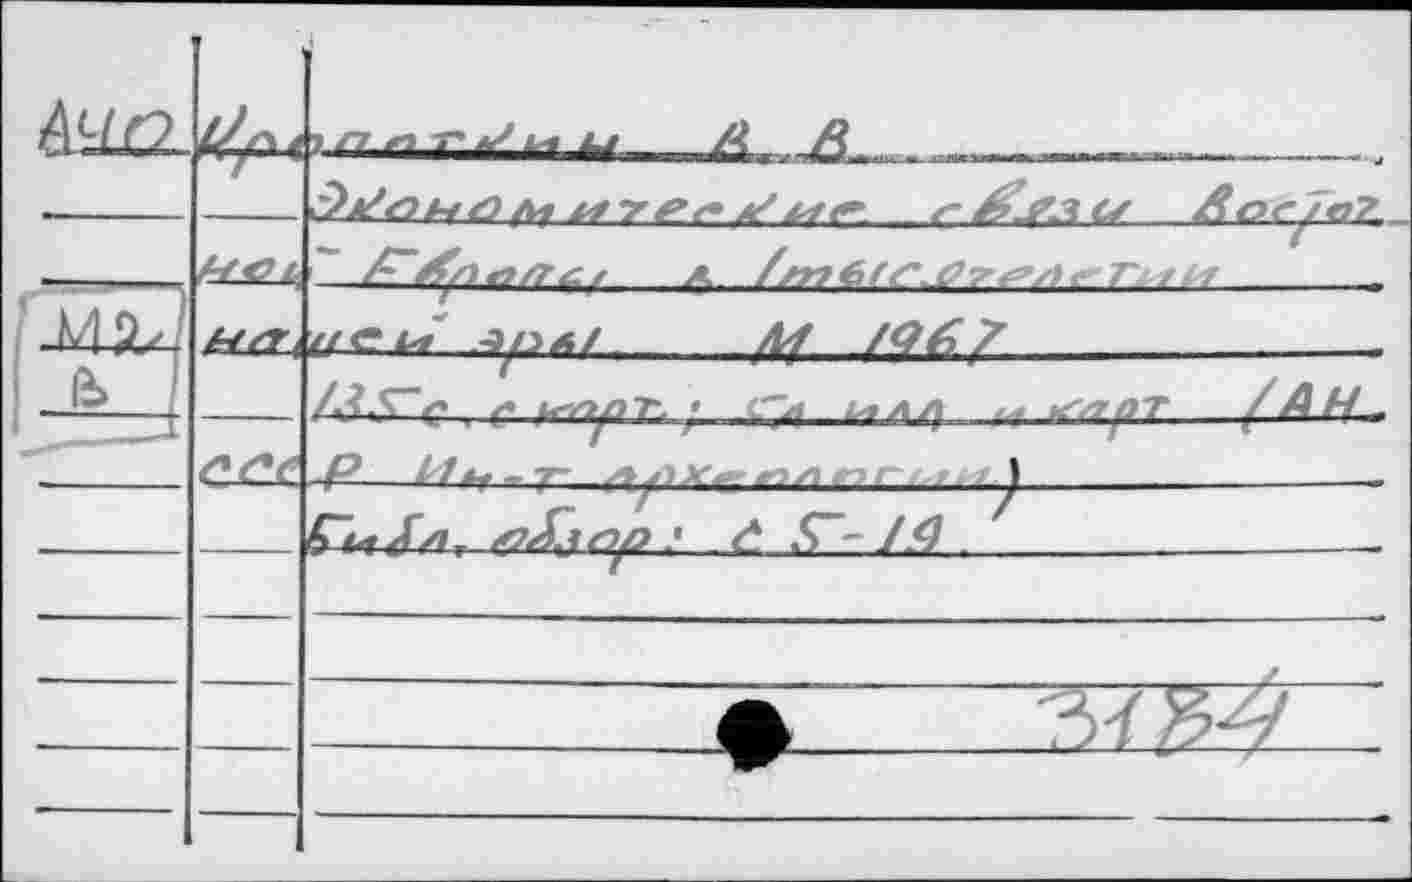 АЧО Кропоткин В В
Экономические связи Восточ
ной Европы в 1 тысячелетии
М2 нашей эры М 1967
В 135с. с карт. ; Сл илл и карт (АН
ССС Р Ин-т археологии)
Библ, обзор : с 5-19 .
3184